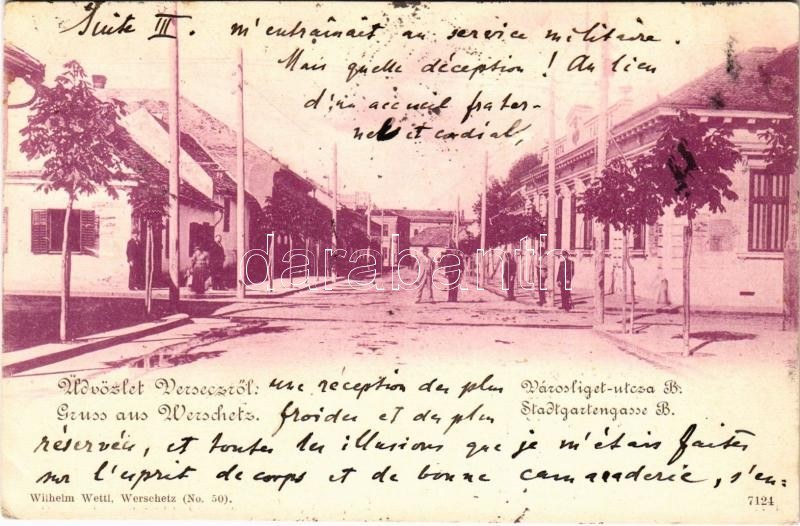 Suite III. m'entraînait au service militaire.
Mais quelle déception! Au lieu
d'un accueil frater-
nel et cordial,
darabanth
Üdvözlet Verseczről:
Gruss aus Werschetz.
Városliget-utcza B.
Stadtgartengasse B.
une réception des plus
froides et des plus
réservées, et toutes les illusions que je m'étais faites
sur l'esprit de corps et de bonne camaraderie, s'en-
Wilhelm Wettl, Werschetz (No. 50).
7124